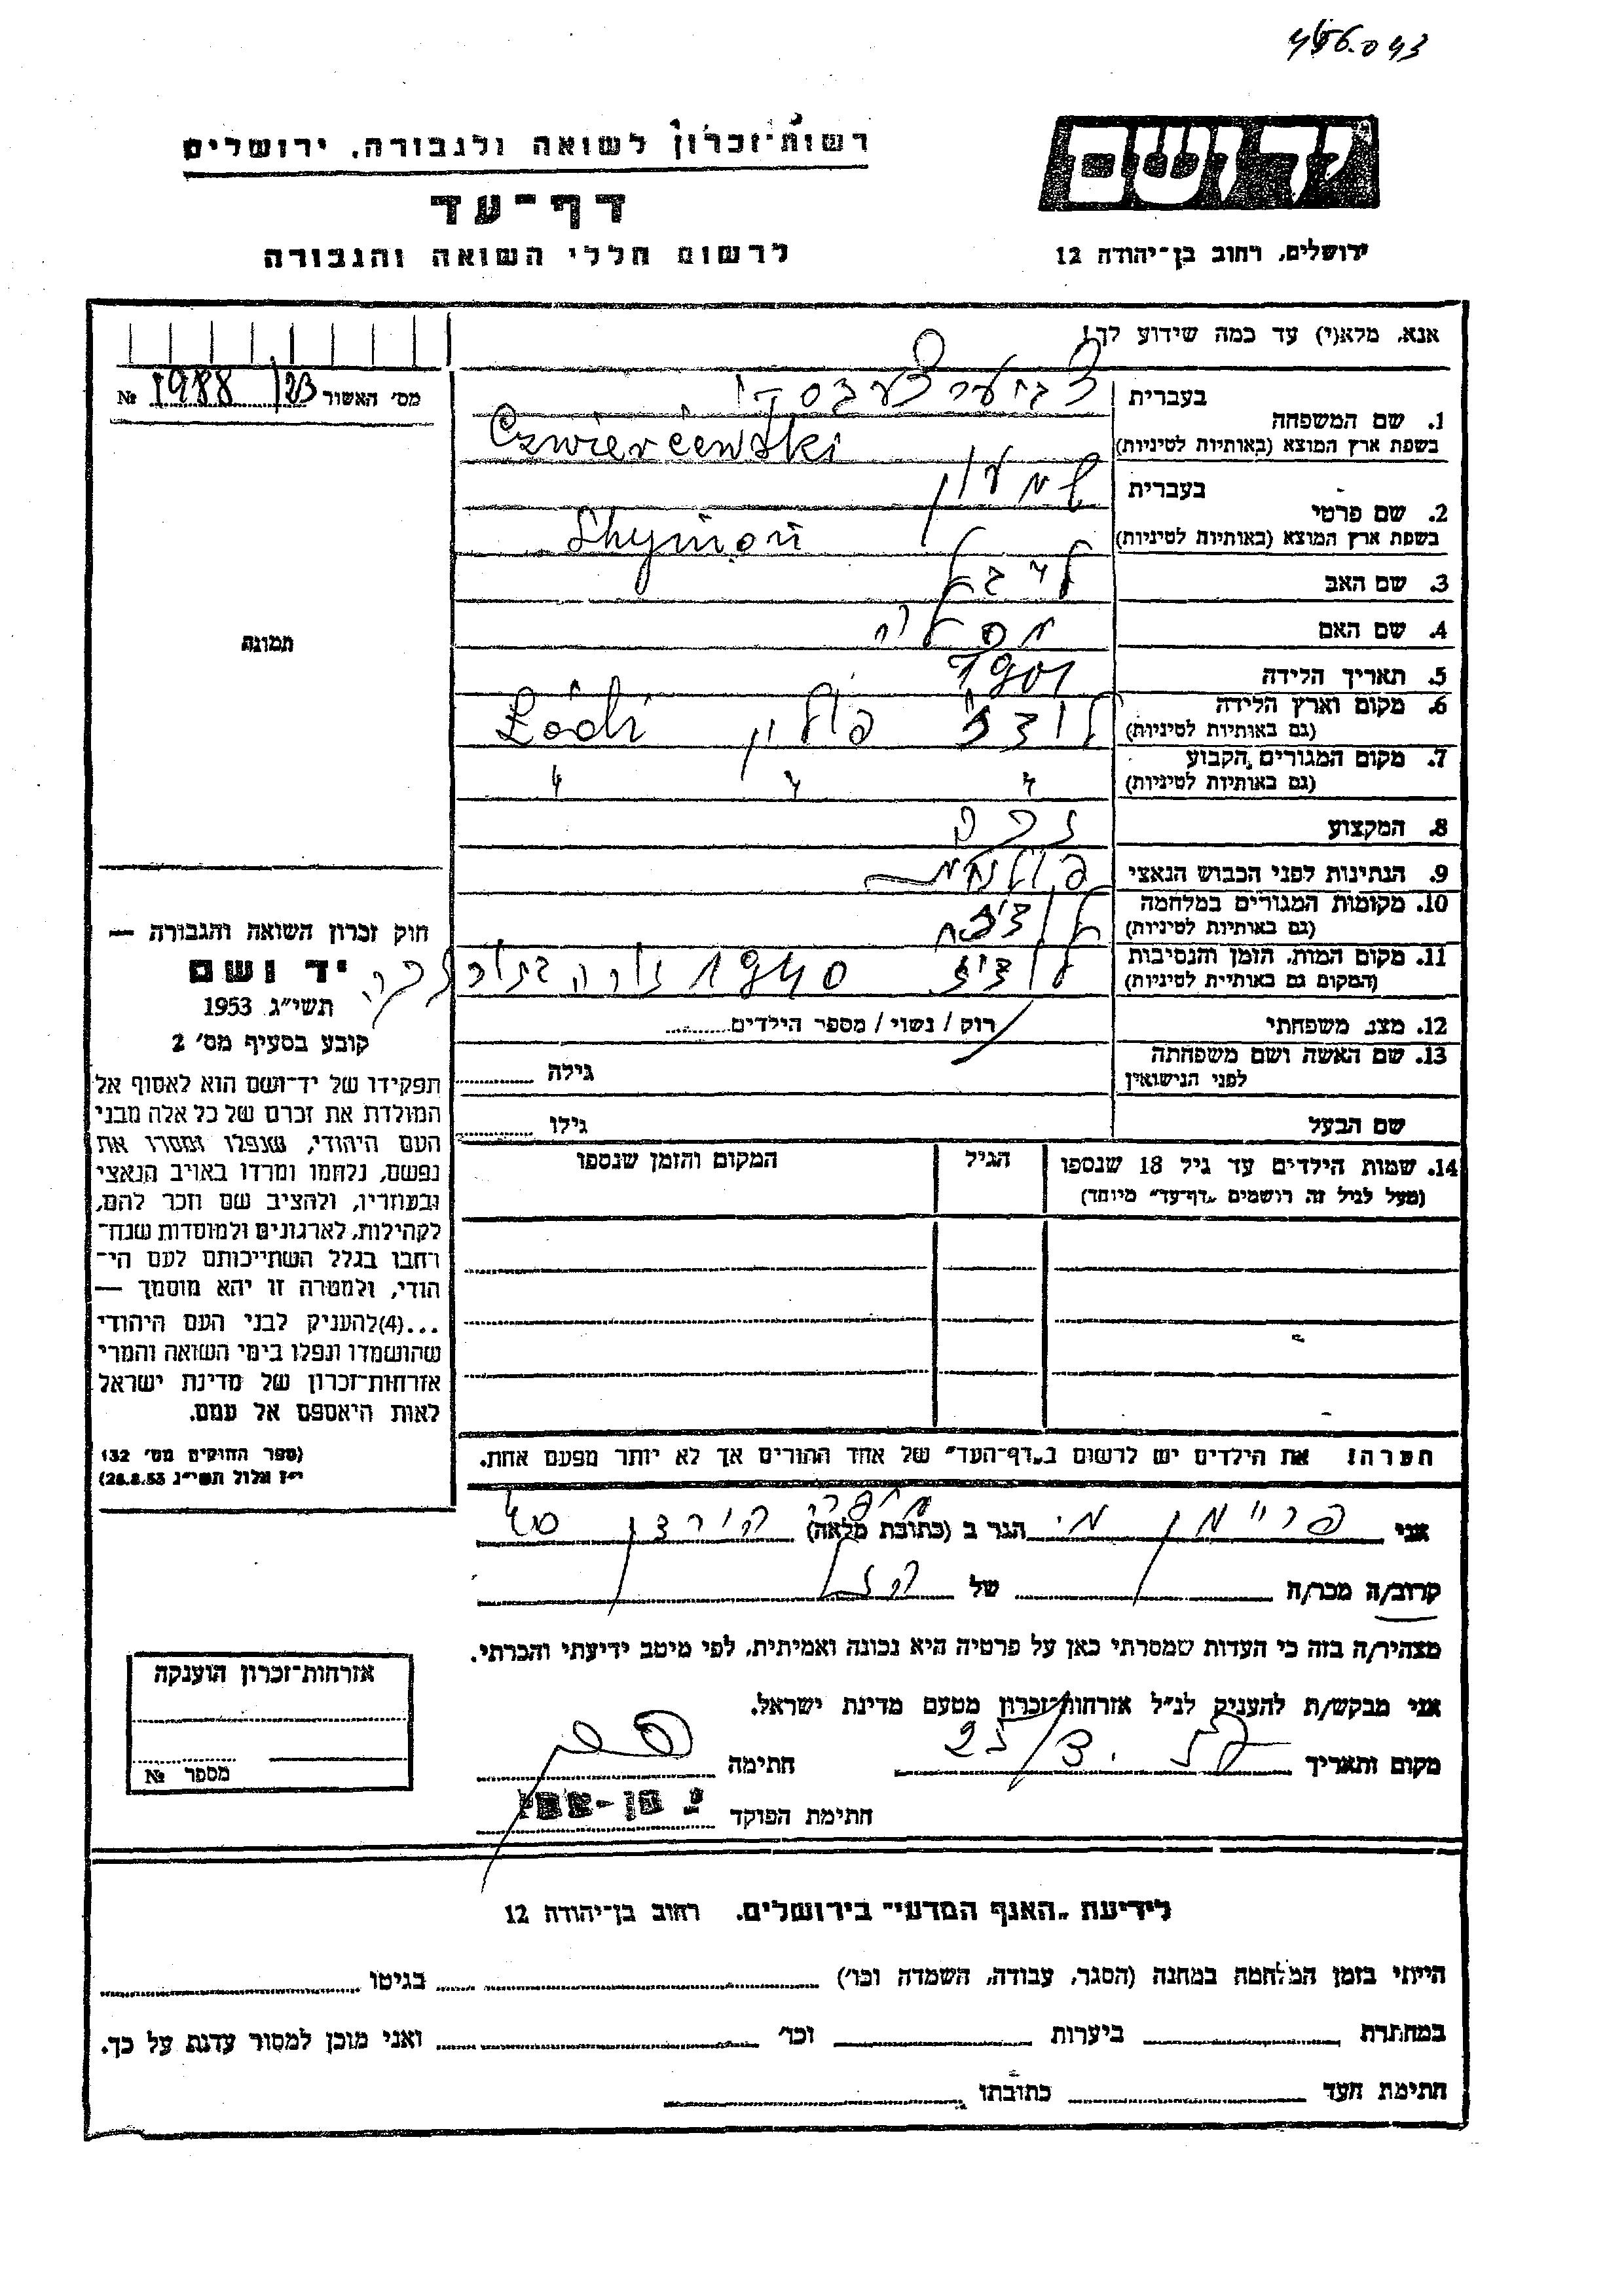 456.043
רשות־זכרון לשואה ולגבורה, ירושלים
דף־עד
לרשום חללי השואה והגבורה
יד ושם
ירושלים, רחוב בן־יהודה 12
אנא, מלא(י) עד כמה שידוע לך!
מס׳ האשור 1988/23 №
1. שם המשפחה
בעברית
בשפת ארץ המוצא (באותיות לטיניות) Czwierćewski
2. שם פרטי
בעברית שמעון
בשפת ארץ המוצא (באותיות לטיניות) Shymon
3. שם האב לייבל
4. שם האם
5. תאריך הלידה 1901
6. מקום וארץ הלידה לודז׳ פולין Łódź
(גם באותיות לטיניות)
7. מקום המגורים הקבוע 〃 〃 〃
(גם באותיות לטיניות)
8. המקצוע
9. הנתינות לפני הכבוש הנאצי פולנית
10. מקומות המגורים במלחמה לודז׳
(גם באותיות לטיניות)
11. מקום המות, הזמן והנסיבות לודז׳ 1940
(המקום גם באותיית לטיניות)
12. מצב משפחתי רוק / נשוי / מספר הילדים
13. שם האשה ושם משפחתה
לפני הנישואין גילה
שם הבעל גילו
14. שמות הילדים עד גיל 18 שנספו הגיל המקום והזמן שנספו
(מעל לגיל זה רושמים „דף־עד״ מיוחד)
תמונה
חוק זכרון השואה והגבורה —
יד ושם
תשי״ג 1953
קובע בסעיף מס׳ 2
תפקידו של יד־ושם הוא לאסוף אל
המולדת את זכרם של כל אלה מבני
העם היהודי, שנפלו ומסרו את
נפשם, נלחמו ומרדו באויב הנאצי
ובעוזריו, ולהציב שם וזכר להם,
לקהילות, לארגונים ולמוסדות שנח־
רחבו בגלל השתייכותם לעם הי־
הודי, ולמטרה זו יהא מוסמך —
...(4)להעניק לבני העם היהודי
שהושמדו ונפלו בימי השואה והמרי
אזרחות־זכרון של מדינת ישראל
לאות היאספם אל עמם.
(ספר החוקים מס׳ 132
י״ז אלול תשי״ג 28.8.53)
הערה! את הילדים יש לרשום ב„דף־העד״ של אחד ההורים אך לא יותר מפעם אחת.
אני פריימן מ. הגר ב (כתובת מלאה) חיפה
קרוב/ה מכר/ה של
מצהיר/ה בזה כי העדות שמסרתי כאן על פרטיה היא נכונה ואמיתית, לפי מיטב ידיעתי והכרתי.
אני מבקש/ת להעניק לנ״ל אזרחות־זכרון מטעם מדינת ישראל.
מקום ותאריך 25/3. חתימה
חתימת הפוקד
אזרחות־זכרון הוענקה
מספר №
לידיעת „האגף המדעי״ בירושלים, רחוב בן־יהודה 12
הייתי בזמן המלחמה במחנה (הסגר, עבודה, השמדה וכו׳) בגיטו
במחתרת ביערות וכו׳ ואני מוכן למסור עדות על כך.
חתימת העד כתובתו